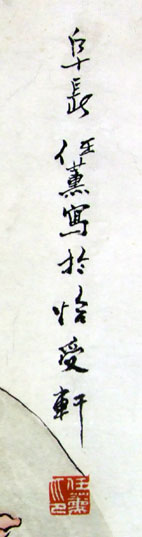 阜長任薰寫於怡受軒
任薰